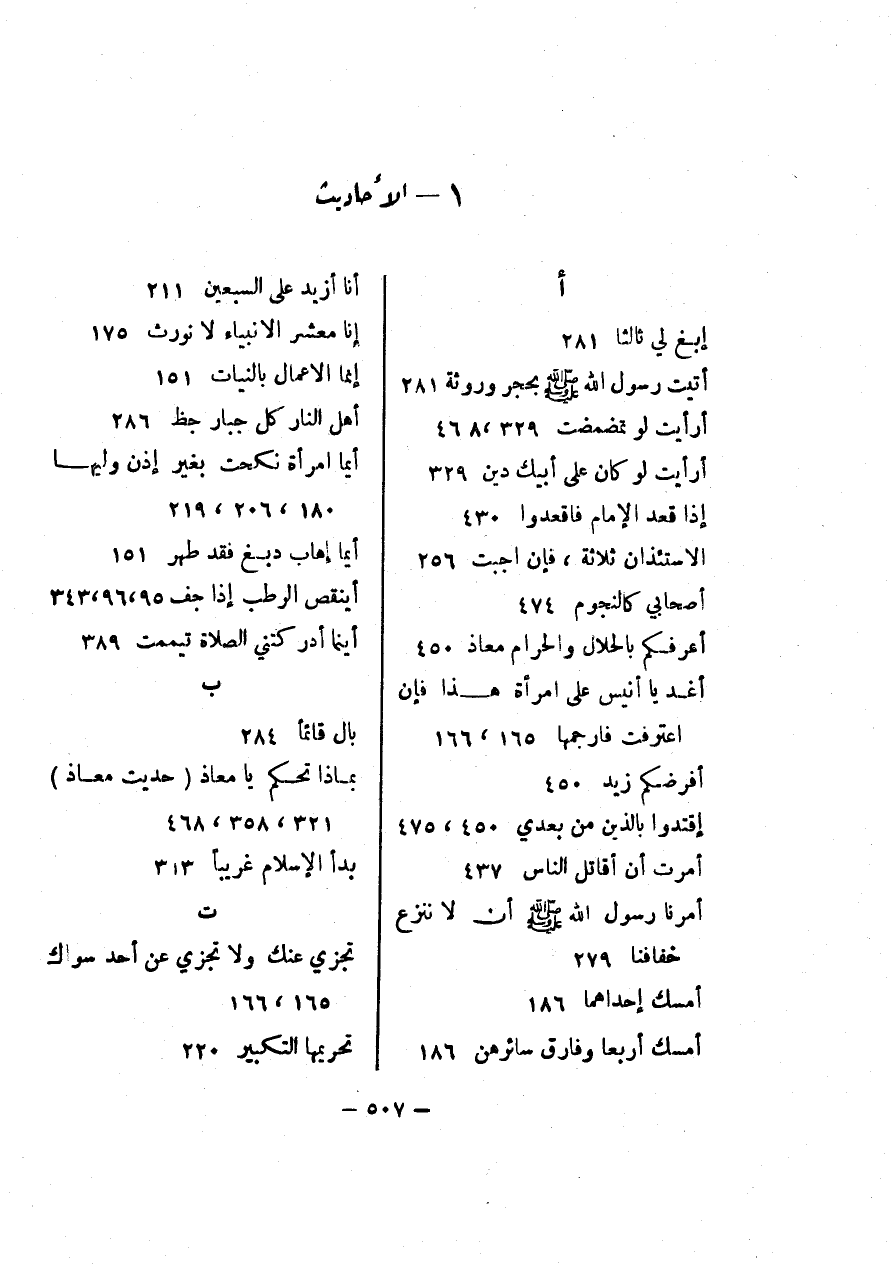 ١ – الأحاديث
أ
إبغ لي ثالثا ٢٨١
أتيت رسول الله ﷺ بحجر وروثة ٢٨١
أرأيت لو تمضمضت ٣٢٩ ، ٤٦٨
أرأيت لو كان على أبيك دين ٣٢٩
إذا قعد الإمام فاقعدوا ٤٣٠
الاستئذان ثلاثة ، فإن اجبت ٢٥٦
أصحابي كالنجوم ٤٧٤
أعرفكم بالحلال والحرام معاذ ٤٥٠
أغد يا أنيس على امرأة هذا فإن
اعترفت فارجمها ١٦٥ ، ١٦٦
أفرضكم زيد ٤٥٠
إقتدوا بالذين من بعدي ٤٥٠ ، ٤٧٥
أمرت أن أقاتل الناس ٤٣٧
أمرنا رسول الله ﷺ أن لا ننزع
خفافنا ٢٧٩
أمسك إحداهما ١٨٦
أمسك أربعا وفارق سائرهن ١٨٦
أنا أزيد على السبعين ٢١١
إنا معشر الانبياء لا نورث ١٧٥
إنما الاعمال بالنيات ١٥١
أهل النار كل جبار جظ ٢٨٦
أيما امرأة نكحت بغير إذن وليها
١٨٠ ، ٢٠٦ ، ٢١٩
أيما إهاب دبغ فقد طهر ١٥١
أينقص الرطب إذا جف ٩٥،٩٦،٣٤٣
أينما أدركتني الصلاة تيممت ٣٨٩
ب
بال قائماً ٢٨٤
بماذا تحكم يا معاذ ( حديث معاذ )
٣٢١ ، ٣٥٨ ، ٤٦٨
بدأ الإسلام غريباً ٣١٣
ت
تجزي عنك ولا تجزي عن أحد سواك
١٦٥ ، ١٦٦
تحريمها التكبير ٢٢٠
– ٥٠٧ –